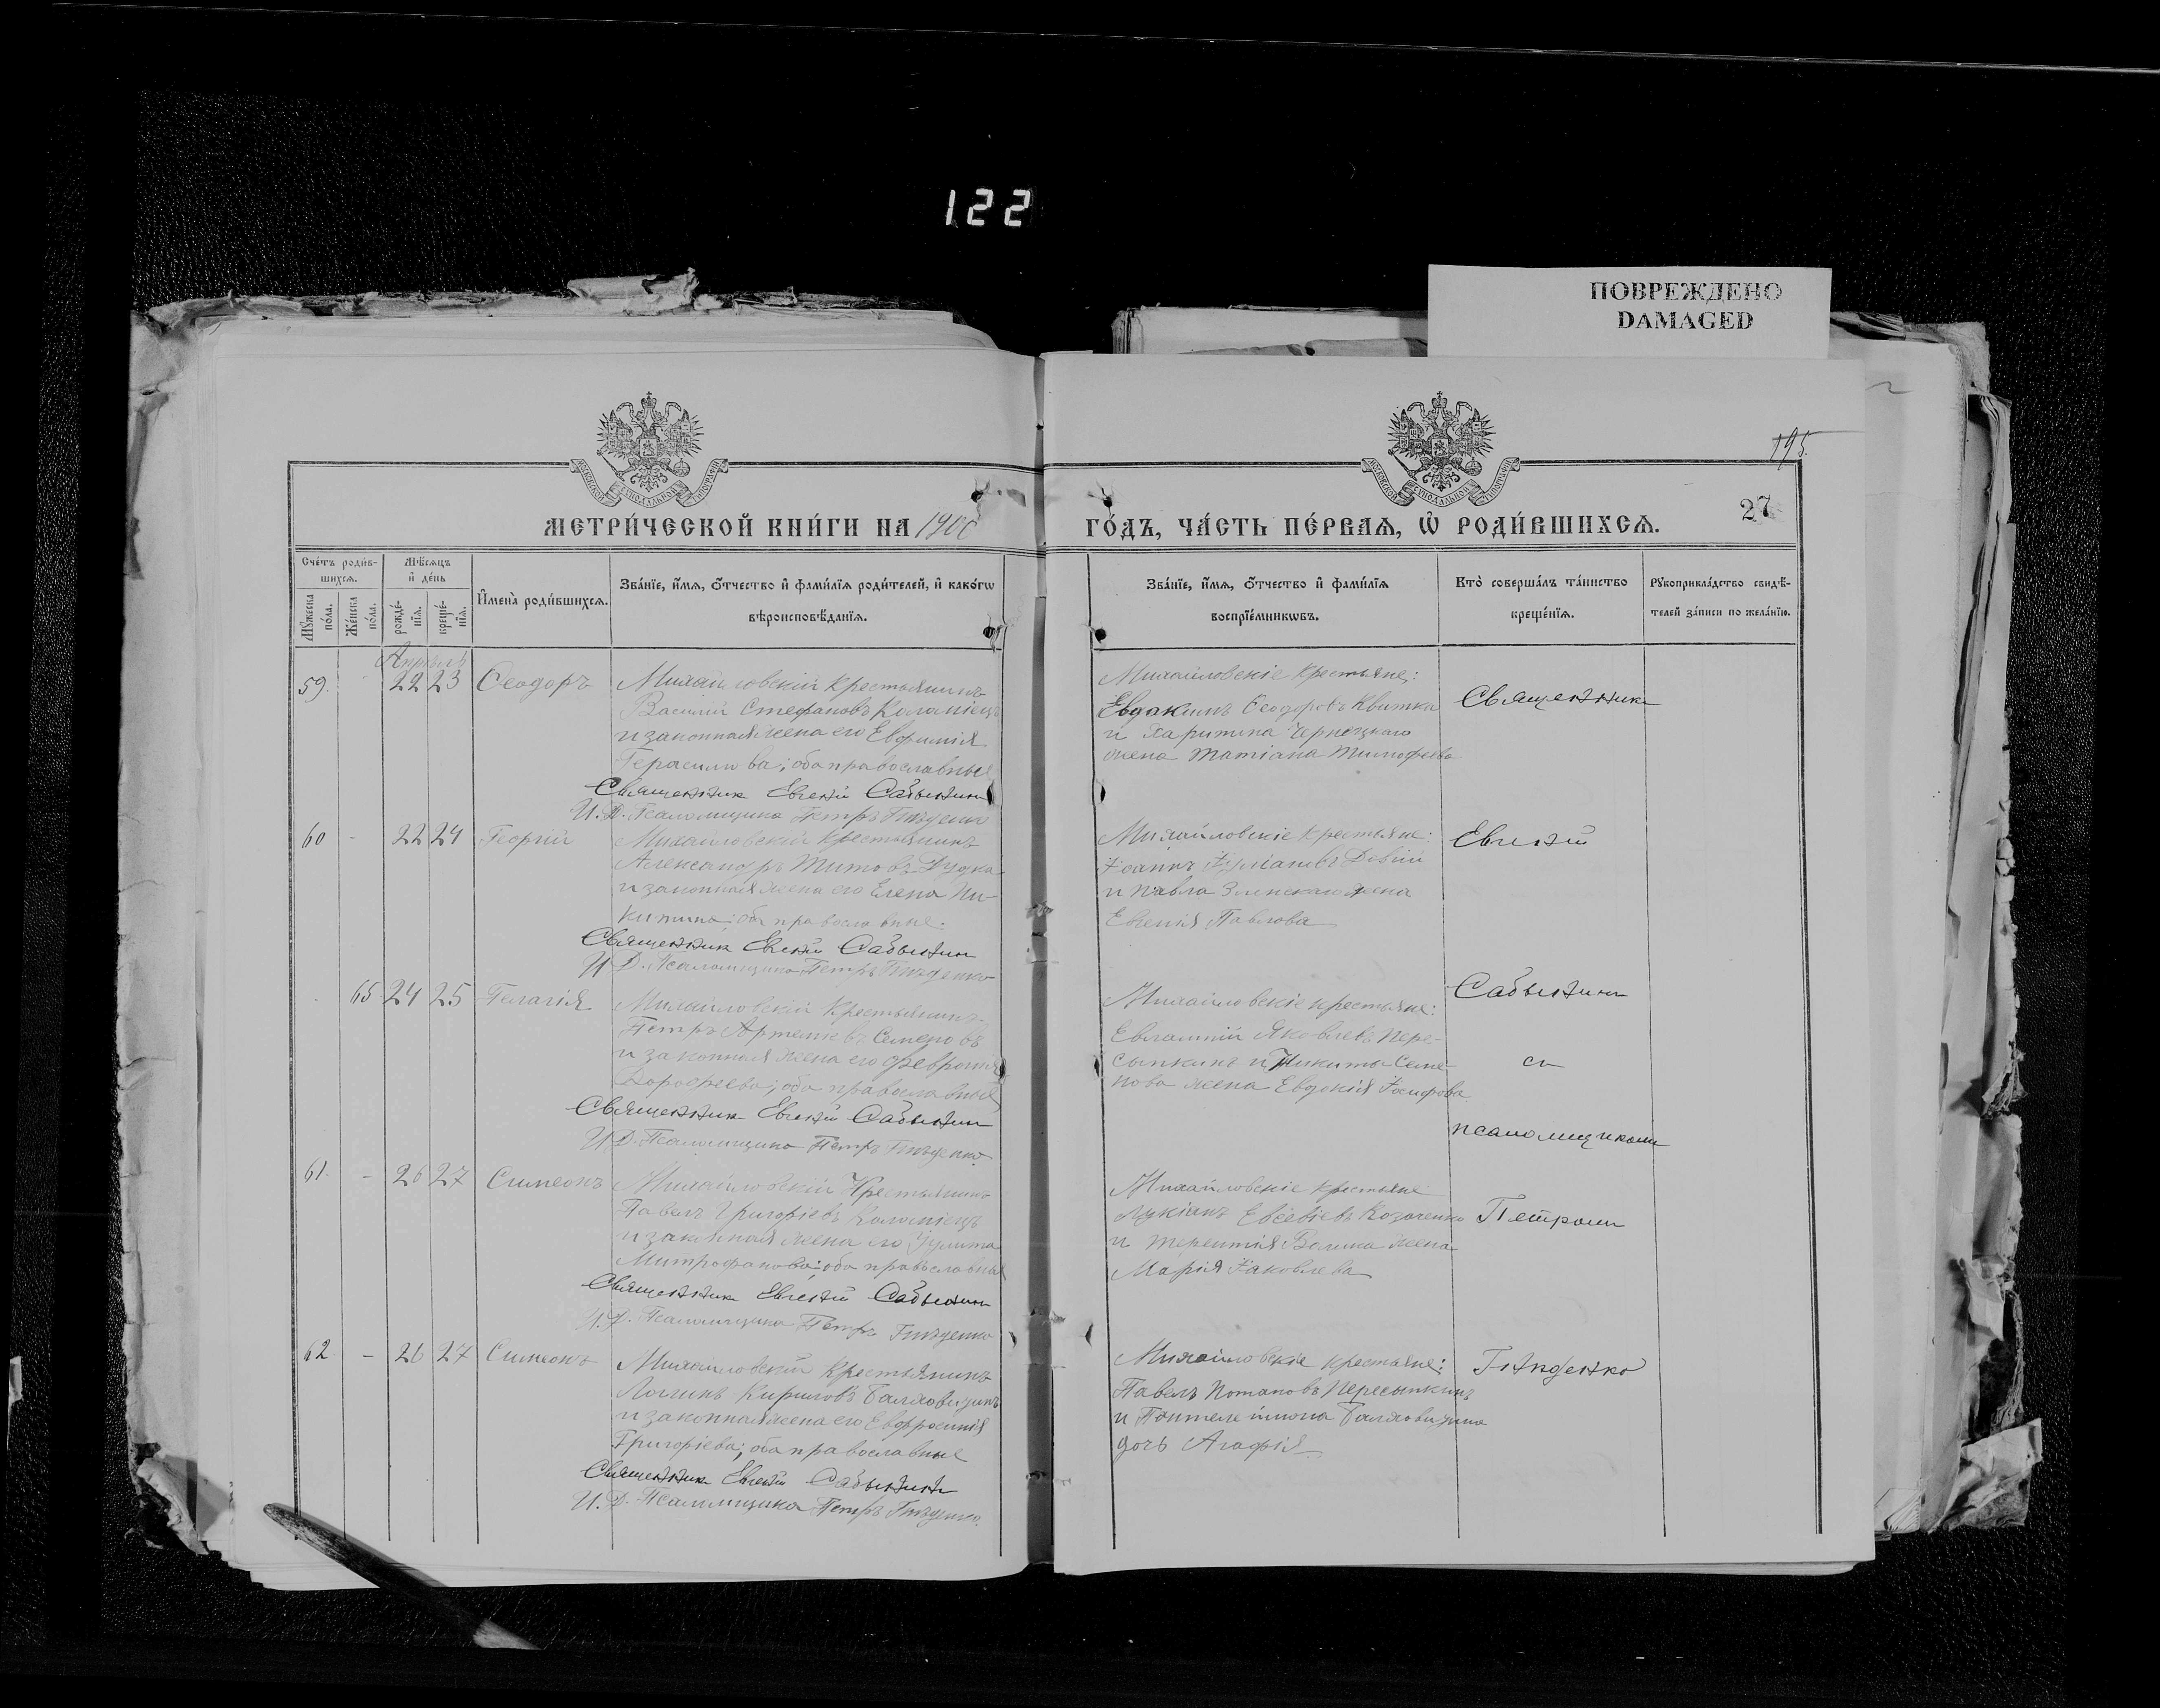 122
ПОВРЕЖДЕНО
DAMAGED
195.
27
МОСКОВСКОЙ СѴНОДАЛЬНОЙ ТИПОГРАФІИ
МОСКОВСКОЙ СѴНОДАЛЬНОЙ ТИПОГРАФІИ
МЕТРИ́ЧЕСКОЙ КНИ́ГИ НА 1900 ГО́ДЪ, ЧА́СТЬ ПЕ́РВАѦ, Ѡ РОДИ́ВШИХСѦ.
Сче́тъ роди́в-
шихсѧ.
Мꙋ́жеска по́ла.
Же́нска по́ла.
Мѣ́сѧцъ и́ де́нь
рожде́-нїѧ.
креще́-нїѧ.
И҆мена̀ роди́вшихсѧ.
Зва́нїе, и҆́мѧ, о҆́тчество и҆ фами́лїѧ роди́телей, и҆ како́гѡ
вѣроисповѣ́данїѧ.
Зва́нїе, и҆́мѧ, о҆́тчество и҆ фами́лїѧ
воспрїе́мникѡвъ.
Кто̀ соверша́лъ та́инство
креще́нїѧ.
Рꙋкоприкла́дство свидѣ́-
телей за́писи по жела́нїю.
Апрѣль
59. 22 23 Ѳеодоръ
Михайловскій крестьянинъ
Василій Стефановъ Коломіецъ
и законная жена его Евфимія
Герасимова; оба православные
Священник Евгений Сабынин
И. Д. Псаломщика Петръ Гнѣденко
Михайловскіе крестьяне:
Евдокимъ Ѳеодоровъ Квитка
и Харитина Чернецкаго
жена Татіана Тимофеева
Священникъ
60 - 22 24 Георгій
Михайловскій крестьянинъ
Александръ Титовъ Дудка
и законная жена его Елена Ни-
китина; оба православные:
Священник Евгений Сабынин
И. Д. Псаломщика Петръ Гнѣденко
Михайловскіе крестьяне:
Іоаннъ Довгій
и Павла Зеленскаго жена
Евгенія Павлова
Евгений
65 24 25 Пелагія
Михайловскій крестьянинъ
Петръ Артемьевъ Семеновъ
и законная жена его Февронія
Дорофеева; оба православные
Священник Евгений Сабынин
И. Д. Псаломщика Петръ Гнѣденко
Михайловскіе крестьяне:
Евлампій Яковлевъ Пере-
сыпкинъ и Никиты Семе-
нова жена Евдокія Іосифова
Сабынин
съ
псаломщиком
61. - 26 27 Симеонъ
Михайловскій крестьянинъ
Павелъ Григорьевъ Коломіецъ
и законная жена его Іулита
Митрофанова; оба православные
Священник Евгений Сабынин
И. Д. Псаломщика Петръ Гнѣденко
Михайловскіе крестьяне
Лукіанъ Евсевіевъ Козаченко
и Терентія жена
Марія Іаковлева
Петром
62 - 26 27 Симеонъ
Михайловскій крестьянинъ
Логинъ Кириловъ
и законная жена его Евфросинія
Григоріева; оба православные
Священник Евгений Сабынин
И. Д. Псаломщика Петръ Гнѣденко.
Михайловскіе крестьяне:
Павелъ Потаповъ Пересыпкинъ
и Пантелеимона
дочь Агафія
Гнѣденко